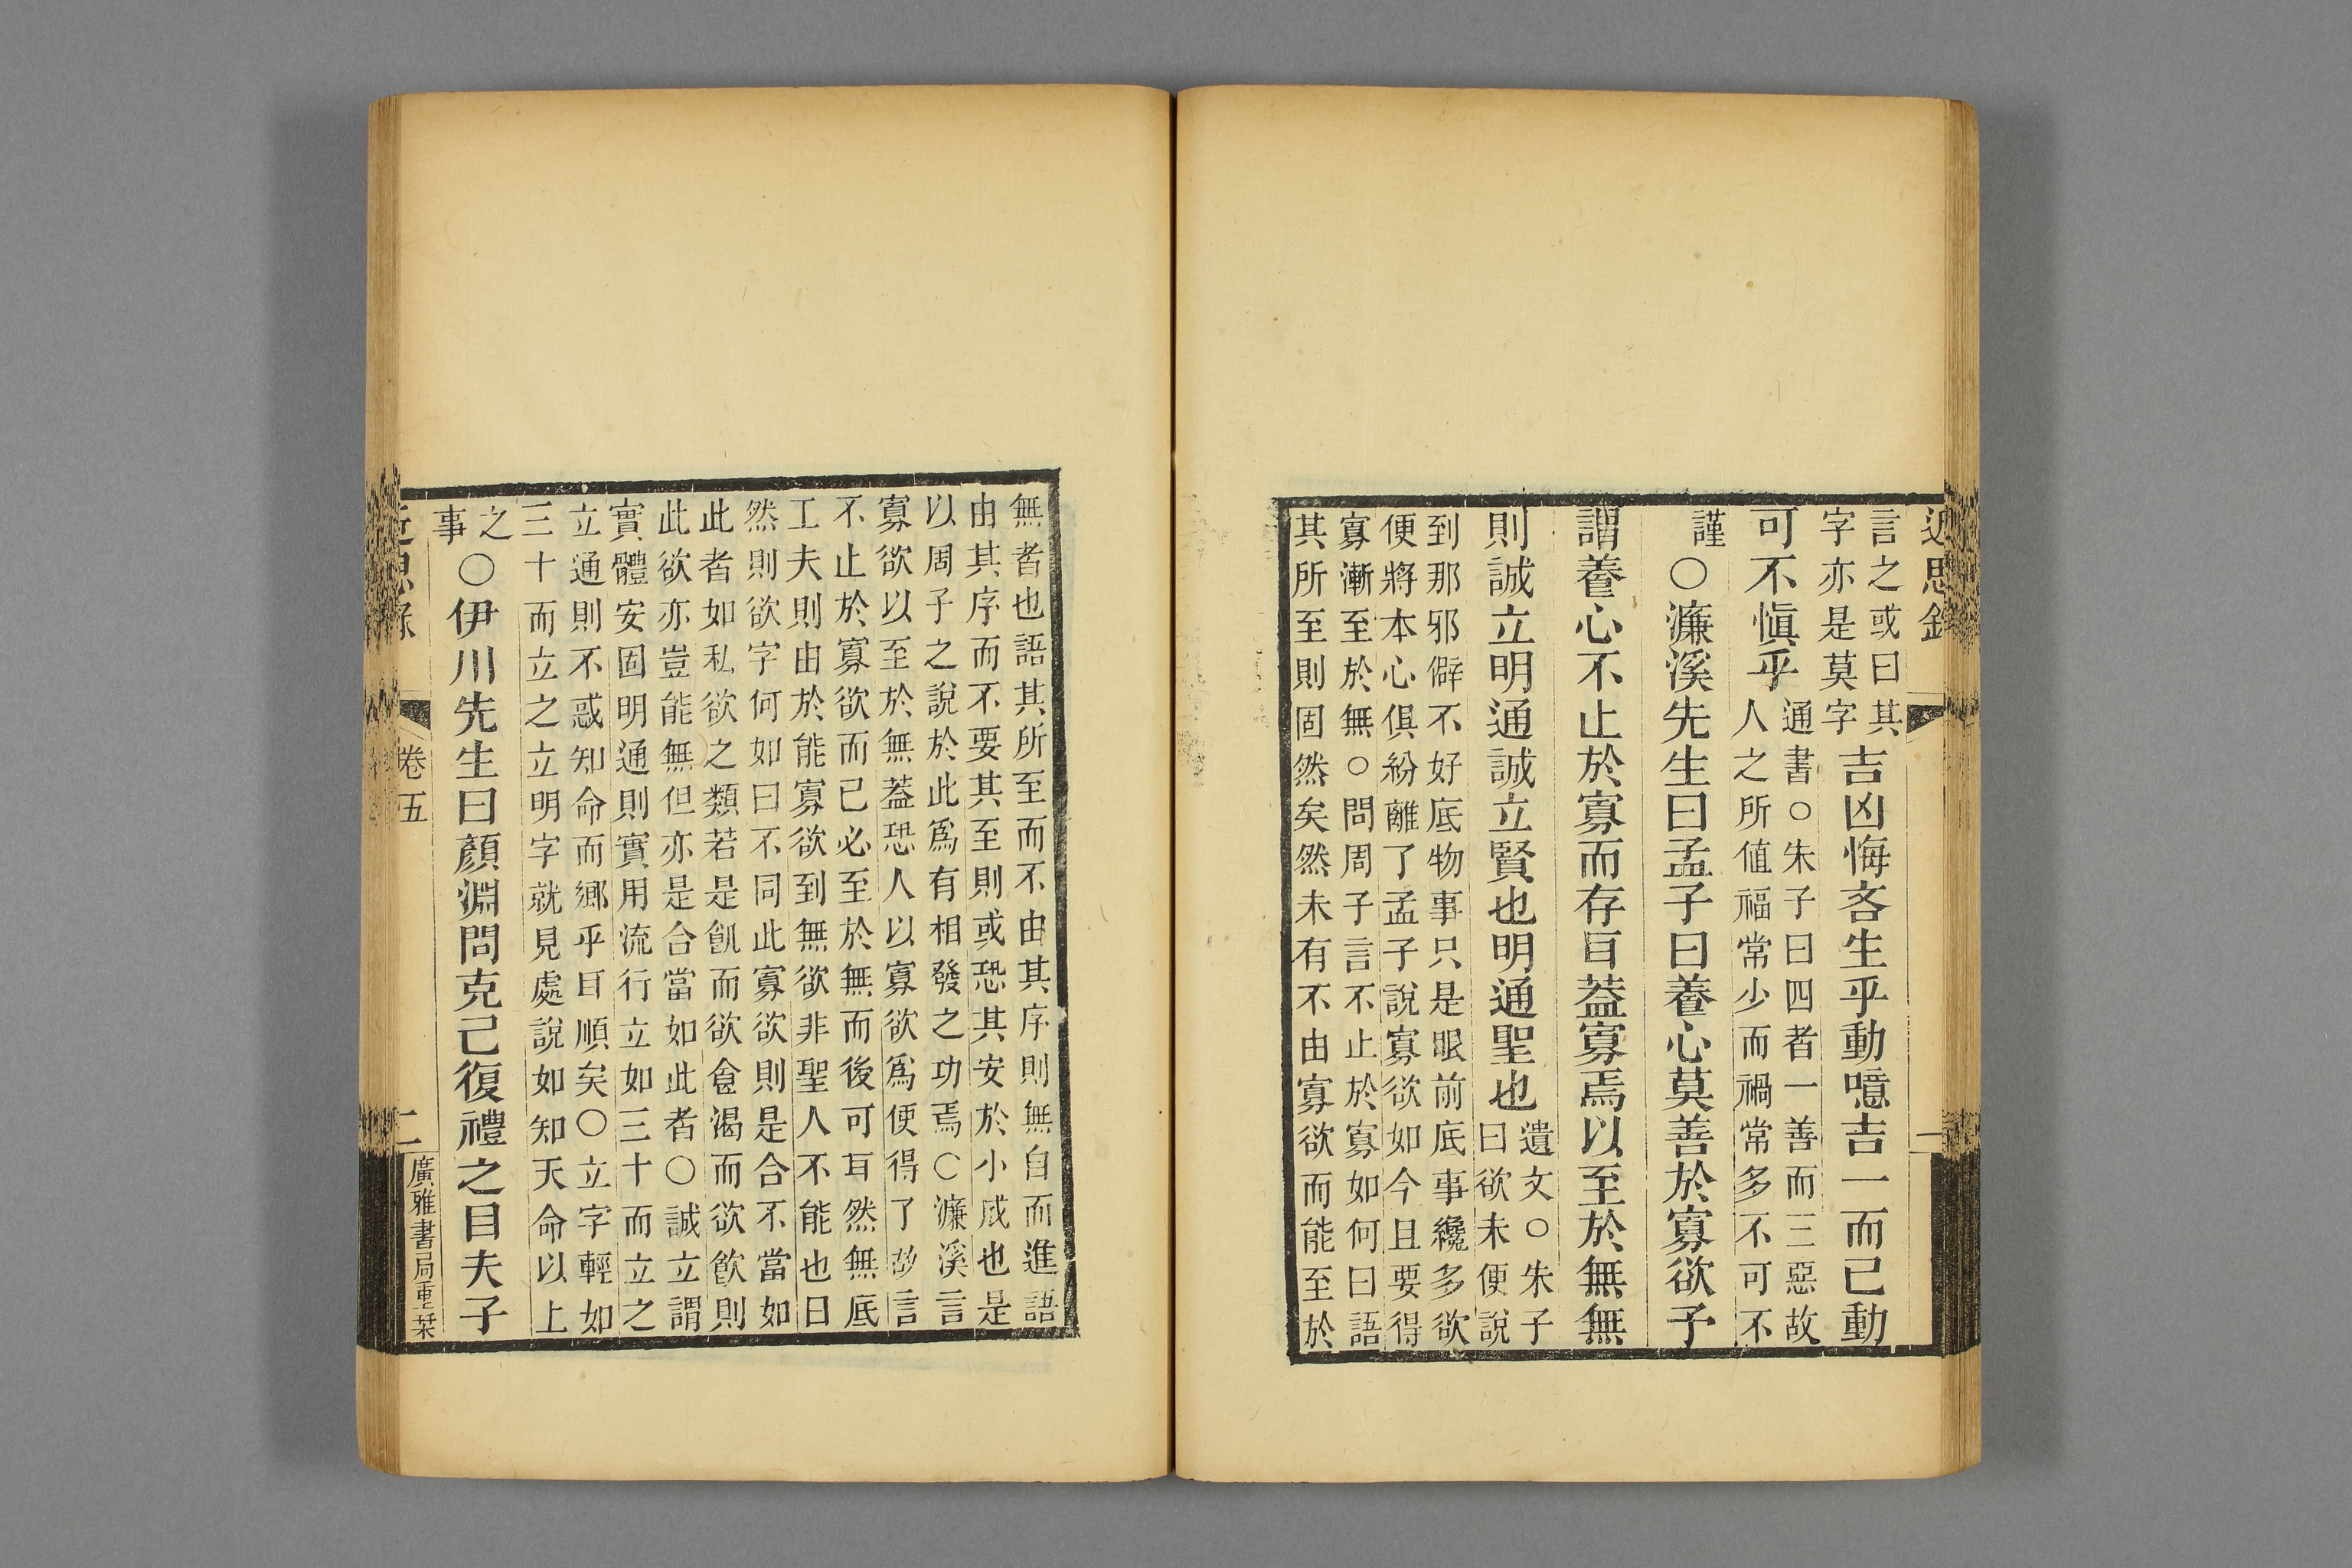 近思錄
一
言之或曰其
字亦是莫字
吉凶悔吝生乎動噫吉一而已動
可不愼乎
通書○朱子曰四者一善而三惡故
人之所値福常少而禍常多不可不
謹
○濂溪先生曰孟子曰養心莫善於寡欲予
謂養心不止於寡而存耳葢寡焉以至於無無
則誠立明通誠立賢也明通聖也
遺文○朱子
曰欲未便說
到那邪僻不好底物事只是眼前底事纔多欲
便將本心俱紛離了孟子說寡欲如今且要得
寡漸至於無○問周子言不止於寡如何曰語
其所至則固然矣然未有不由寡欲而能至於
無者也語其所至而不由其序則無自而進語
由其序而不要其至則或恐其安於小成也是
以周子之說於此爲有相發之功焉○濂溪言
寡欲以至於無葢恐人以寡欲爲便得了故言
不止於寡欲而已必至於無而後可耳然無底
工夫則由於能寡欲到無欲非聖人不能也曰
然則欲字何如曰不同此寡欲則是合不當如
此者如私欲之類若是飢而欲食渴而欲飮則
此欲亦豈能無但亦是合當如此者○誠立謂
實體安固明通則實用流行立如三十而立之
立通則不惑知命而鄉乎耳順矣○立字輕如
三十而立之立明字就見處說如知天命以上
之
事
○伊川先生曰顏淵問克己復禮之目夫子
近思錄
卷五
二
廣雅書局重栞